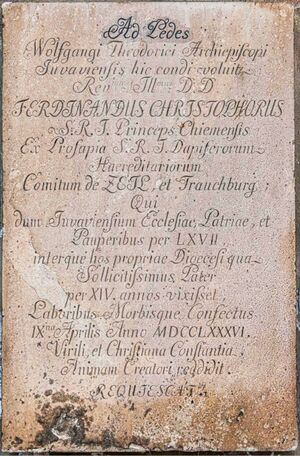 Ad Pedes
Wolfgangi Theodorici Archiepiscopi
Juvaviensis hic condi voluit
Revmus Illmus D.D.
FERDINANDUS CHRISTOPHORUS
S.R.I. Princeps Chiemensis
Ex Prosapia S.R.I. Dapiferorum
Haereditariorum
Comitum de ZEIL, et Trauchburg;
Qui
dum Juvaviensium Ecclesiae, Patriae, et
Pauperibus per LXVII
interque hos propriae Dioecesi qua
Sollicitissimus Pater
per XIV. annos vixisset,
Laboribus Morbisque Confectus
IXna Aprilis Anno MDCCLXXXVI.
Virili, et Christiana Constantia
Animam Creatori reddidit.
REQUIESCAT